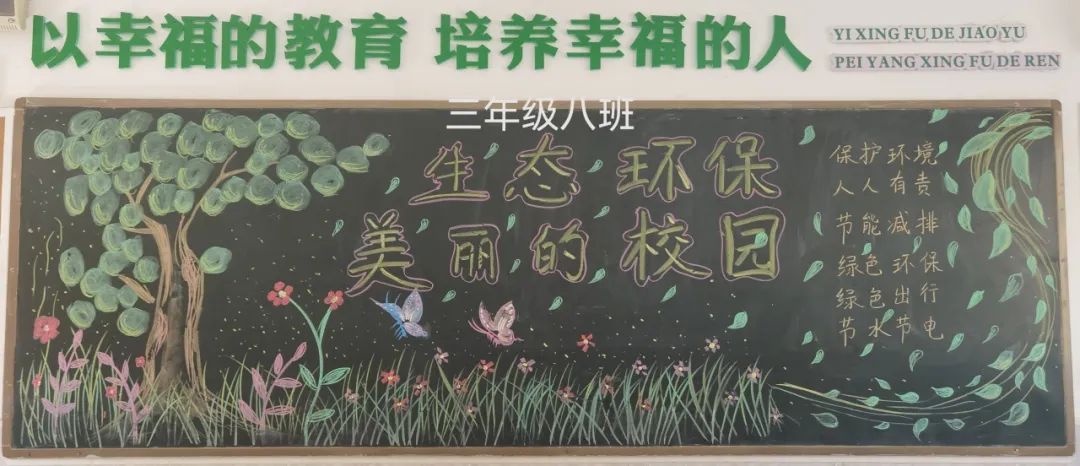 以幸福的教育 培养幸福的人
YI XING FU DE JIAO YU
PEI YANG XING FU DE REN
三年级八班
生态 环保
美丽的校园
保护环境
人人有责
节能减排
绿色环保
绿色出行
节水节电